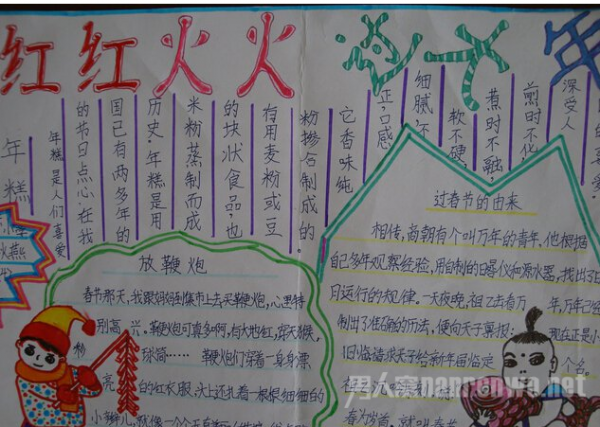 红红火火过大年
年糕
年糕是人们喜爱
的节日点心。在我
国已有两多年的
历史。年糕是用
米粉蒸制而成
的块状食品，也
有用麦粉或豆
粉掺合制成的。
它香味纯
正，口感
细腻，不
软不硬，
煮时不融，
煎时不化，
深受人
放鞭炮
春节那天，我跟妈妈到集市上去买鞭炮，心里特
别高兴。鞭炮可真多啊，有大地红，窜天猴，
球筒……鞭炮们穿着一身身票
亮的红衣服，头上还扎着一根根细细的
小辫儿
过春节的由来
相传，商朝有个叫万年的青年，他根据
自己多年观察经验，用自制的日晷仪和漏水器，找出了日
月运行的规律。
制出了准确的历法，便向天子禀报。现在正是小
旧临
天子给新年国临定个名。
春为岁首，就叫春节
男人窝nanrenwa.net